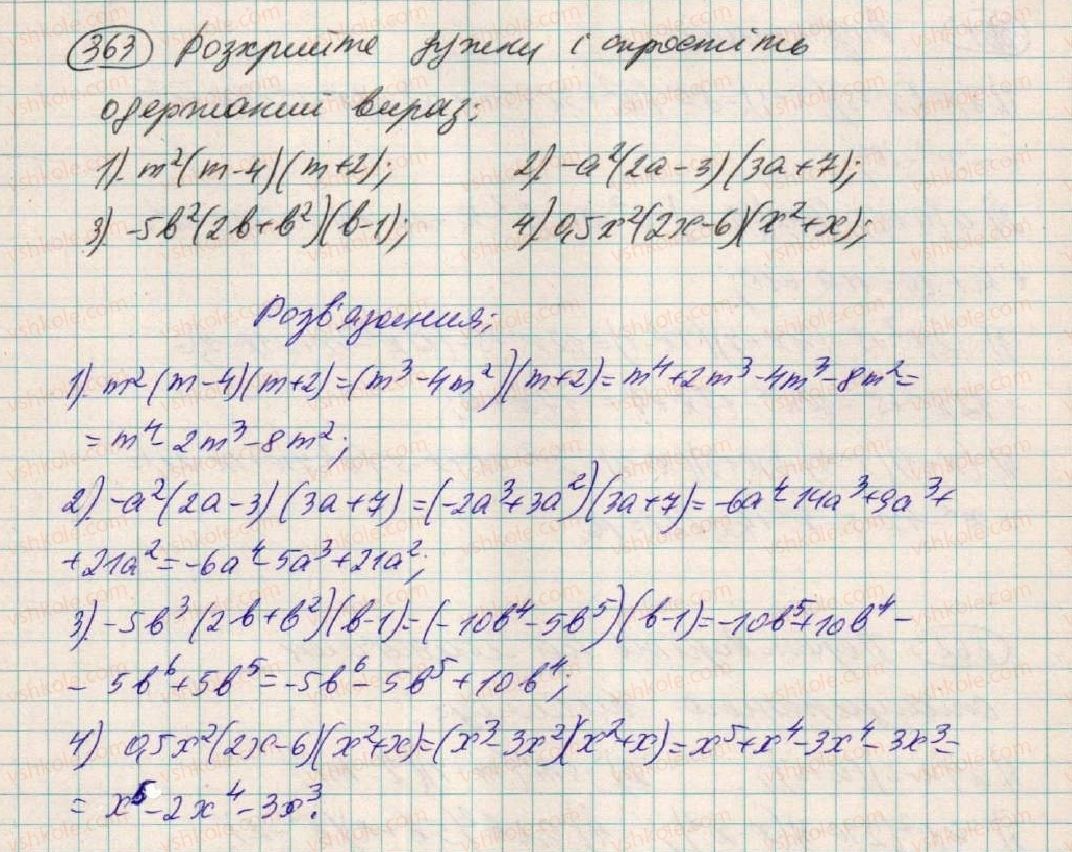 363 Розкрийте дужки і спростіть
одержаний вираз:
1). m²(m-4)(m+2); 2) -a²(2a-3)(3a+7);
3) -5b²(2b+b²)(b-1); 4) 0,5x²(2x-6)(x²+x);
Розв'язання;
1). m²(m-4)(m+2)=(m³-4m²)(m+2)=m⁴+2m³-4m³-8m²=
=m⁴-2m³-8m²;
2). -a²(2a-3)(3a+7)=(-2a³+3a²)(3a+7)=-6a⁴-14a³+9a³+
+21a²=-6a⁴-5a³+21a²;
3). -5b³(2b+b²)(b-1)=(-10b⁴-5b⁵)(b-1)=-10b⁵+10b⁴-
-5b⁶+5b⁵=-5b⁶-5b⁵+10b⁴;
4) 0,5x²(2x-6)(x²+x)=(x³-3x²)(x²+x)=x⁵+x⁴-3x⁴-3x³=
=x⁵-2x⁴-3x³.
vshkole.com